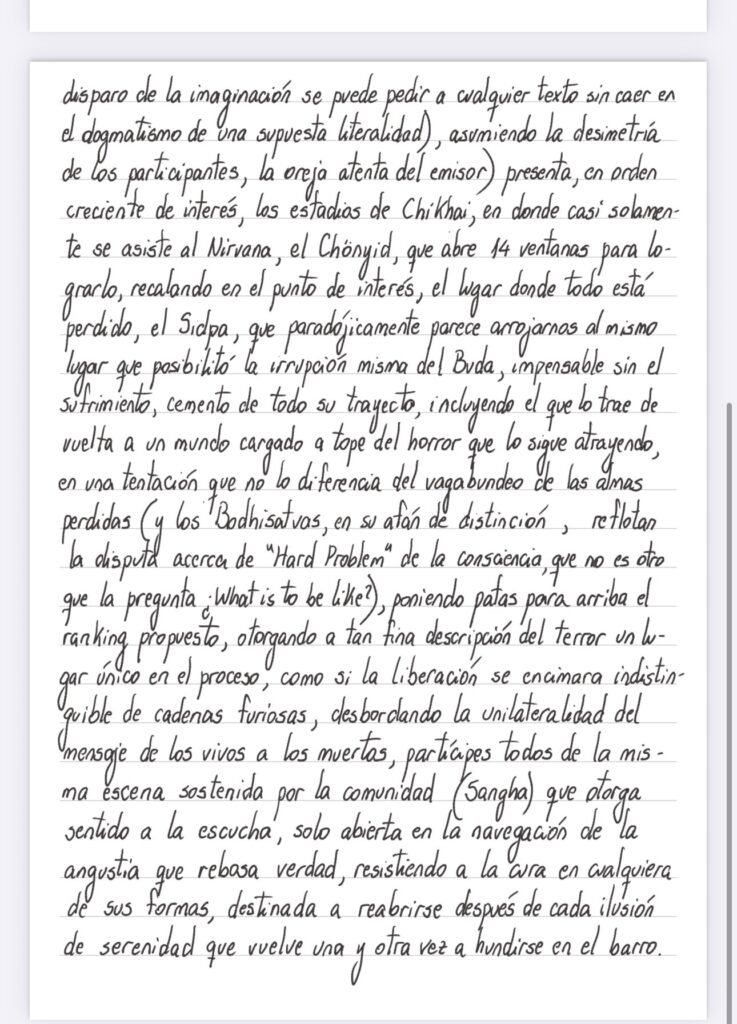 disparo de la imaginación se puede pedir a cualquier texto sin caer en
el dogmatismo de una supuesta literalidad), asumiendo la desimetría
de los participantes, la oreja atenta del emisor) presenta, en orden
creciente de interés, los estadios de Chikhai, en donde casi solamen-
te se asiste al Nirvana, el Chönyid, que abre 14 ventanas para lo-
grarlo, recalando en el punto de interés, el lugar donde todo está
perdido, el Sidpa, que paradójicamente parece arrojarnos al mismo
lugar que posibilitó la irrupción misma del Buda, impensable sin el
sufrimiento, cemento de todo su trayecto, incluyendo el que lo trae de
vuelta a un mundo cargado a tope del horror que lo sigue atrayendo,
en una tentación que no lo diferencia del vagabundeo de las almas
perdidas (y los Bodhisatvas, en su afán de distinción, reflotan
la disputa acerca de "Hard Problem" de la consciencia, que no es otro
que la pregunta ¿What is to be like?), poniendo patas para arriba el
ranking propuesto, otorgando a tan fina descripción del terror un lu-
gar único en el proceso, como si la liberación se encimara indistin-
guible de cadenas furiosas, desbordando la unilateralidad del
mensaje de los vivos a los muertos, partícipes todos de la mis-
ma escena sostenida por la comunidad (Sangha) que otorga
sentido a la escucha, solo abierta en la navegación de la
angustia que rebasa verdad, resistiendo a la cura en cualquiera
de sus formas, destinada a reabrirse después de cada ilusión
de serenidad que vuelve una y otra vez a hundirse en el barro.